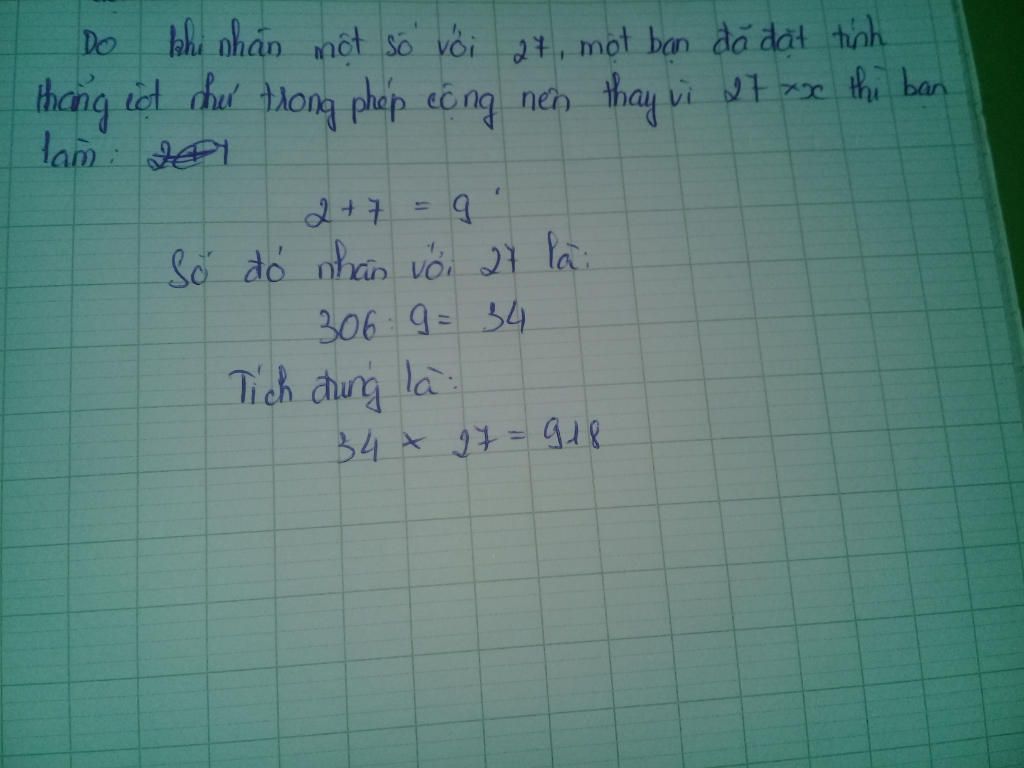 Do khi nhân một số với 27, một bạn đã đặt tính
thẳng cột như trong phép cộng nên thay vì 27 x x thì bạn
làm:
2 + 7 = 9
Số đó nhân với 27 là:
306 : 9 = 34
Tích đúng là:
34 x 27 = 918